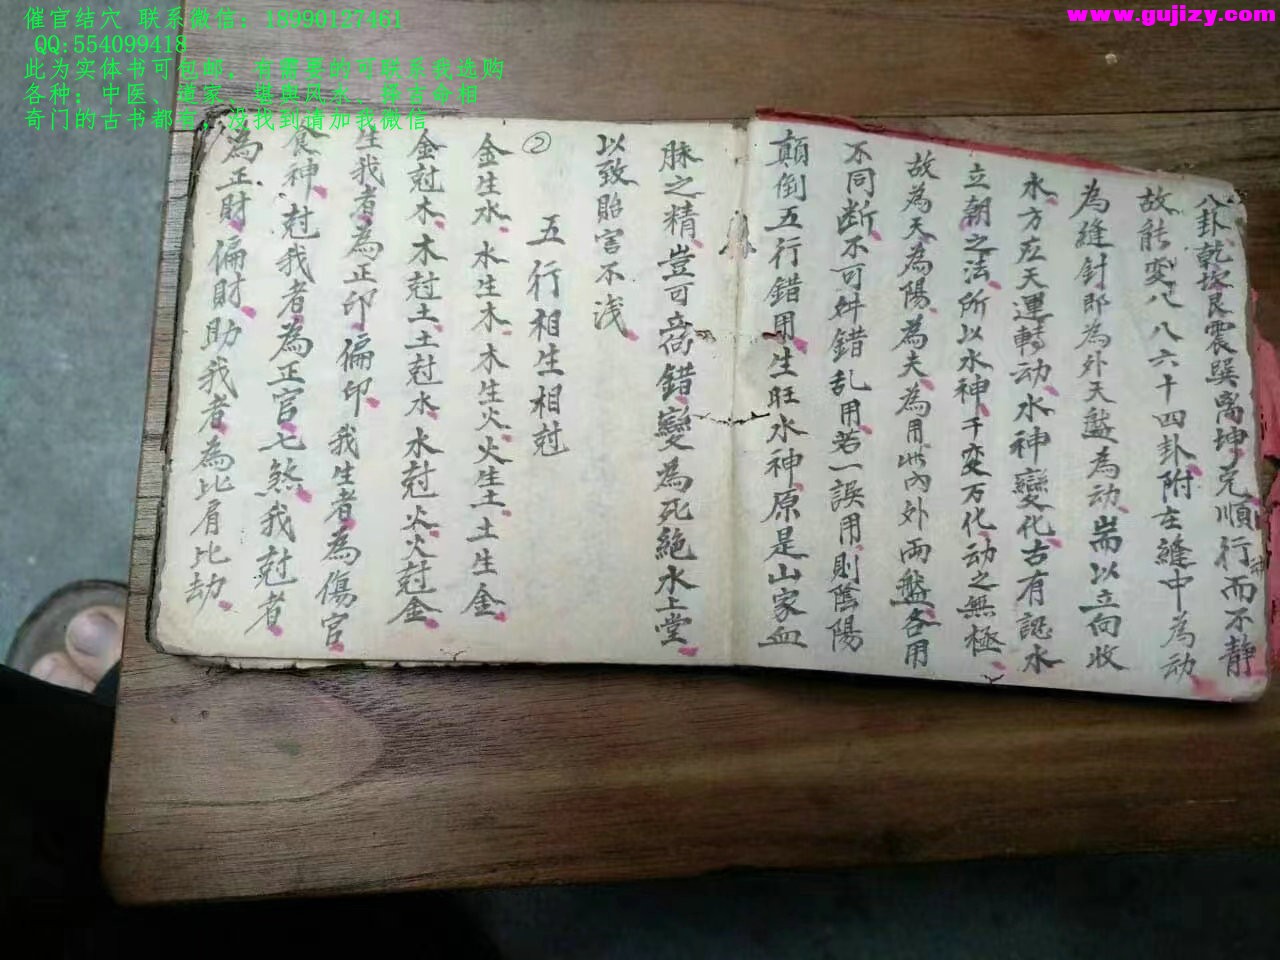 催官结穴 联系微信：18990127461
QQ:554099418
此为实体书可包邮，有需要的可联系我选购
各种：中医、道家、堪舆风水、择吉命相
奇门的古书都有，没找到请加我微信
www.gujizy.com
八卦乾坎艮震巽离坤兑順行而不静
故能变八八六十四卦附在縫中為动
為縫針即為外天盤為动耑以立向收
水方左天運轉动水神變化古有認水
立朝之法所以水神千变万化动之無極
故為天為陽為夫為用此内外兩盤各用
不同断不可舛錯乱用若一誤用則陰陽
顛倒五行錯用生旺水神原是山家血
脉之精豈可喬錯變為死絶水上堂
以致貽害不浅
②
五行相生相尅
金生水水生木木生火火生土土生金
金尅木木尅土土尅水水尅火火尅金
生我者為正印偏印我生者為傷官
食神尅我者為正官七煞我尅者
為正財偏財助我者為比肩比劫